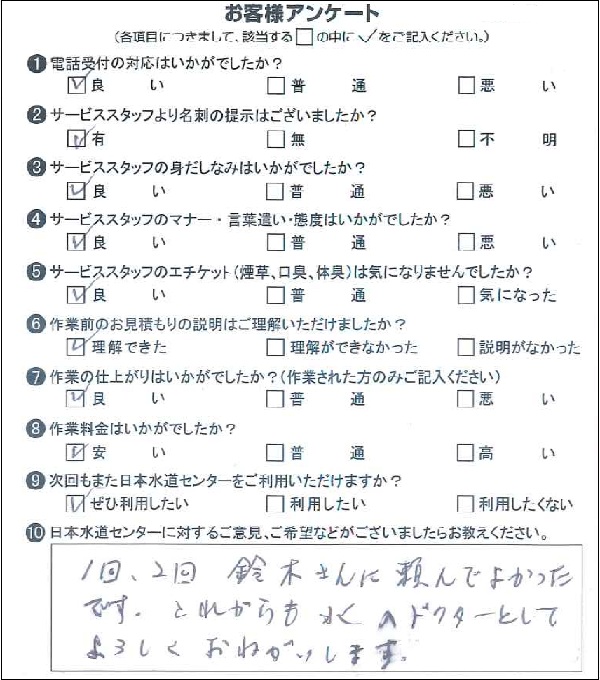 お客様アンケート
(各項目につきまして、該当する□の中に✓をご記入ください。)
❶電話受付の対応はいかがでしたか?
☑良い □普通 □悪い
❷サービススタッフより名刺の提示はございましたか?
☑有 □無 □不明
❸サービススタッフの身だしなみはいかがでしたか?
☑良い □普通 □悪い
❹サービススタッフのマナー・言葉遣い・態度はいかがでしたか?
☑良い □普通 □悪い
❺サービススタッフのエチケット(煙草、口臭、体臭)は気になりませんでしたか?
☑良い □普通 □気になった
❻作業前のお見積もりの説明はご理解いただけましたか?
☑理解できた □理解ができなかった □説明がなかった
❼作業の仕上がりはいかがでしたか?(作業された方のみご記入ください)
☑良い □普通 □悪い
❽作業料金はいかがでしたか?
☑安い □普通 □高い
❾次回もまた日本水道センターをご利用いただけますか?
☑ぜひ利用したい □利用したい □利用したくない
❿日本水道センターに対するご意見、ご希望などがございましたらお教えください。
1回、2回 鈴木さんに頼んでよかった
です。これからも水のドクターとして
よろしくおねがいします。